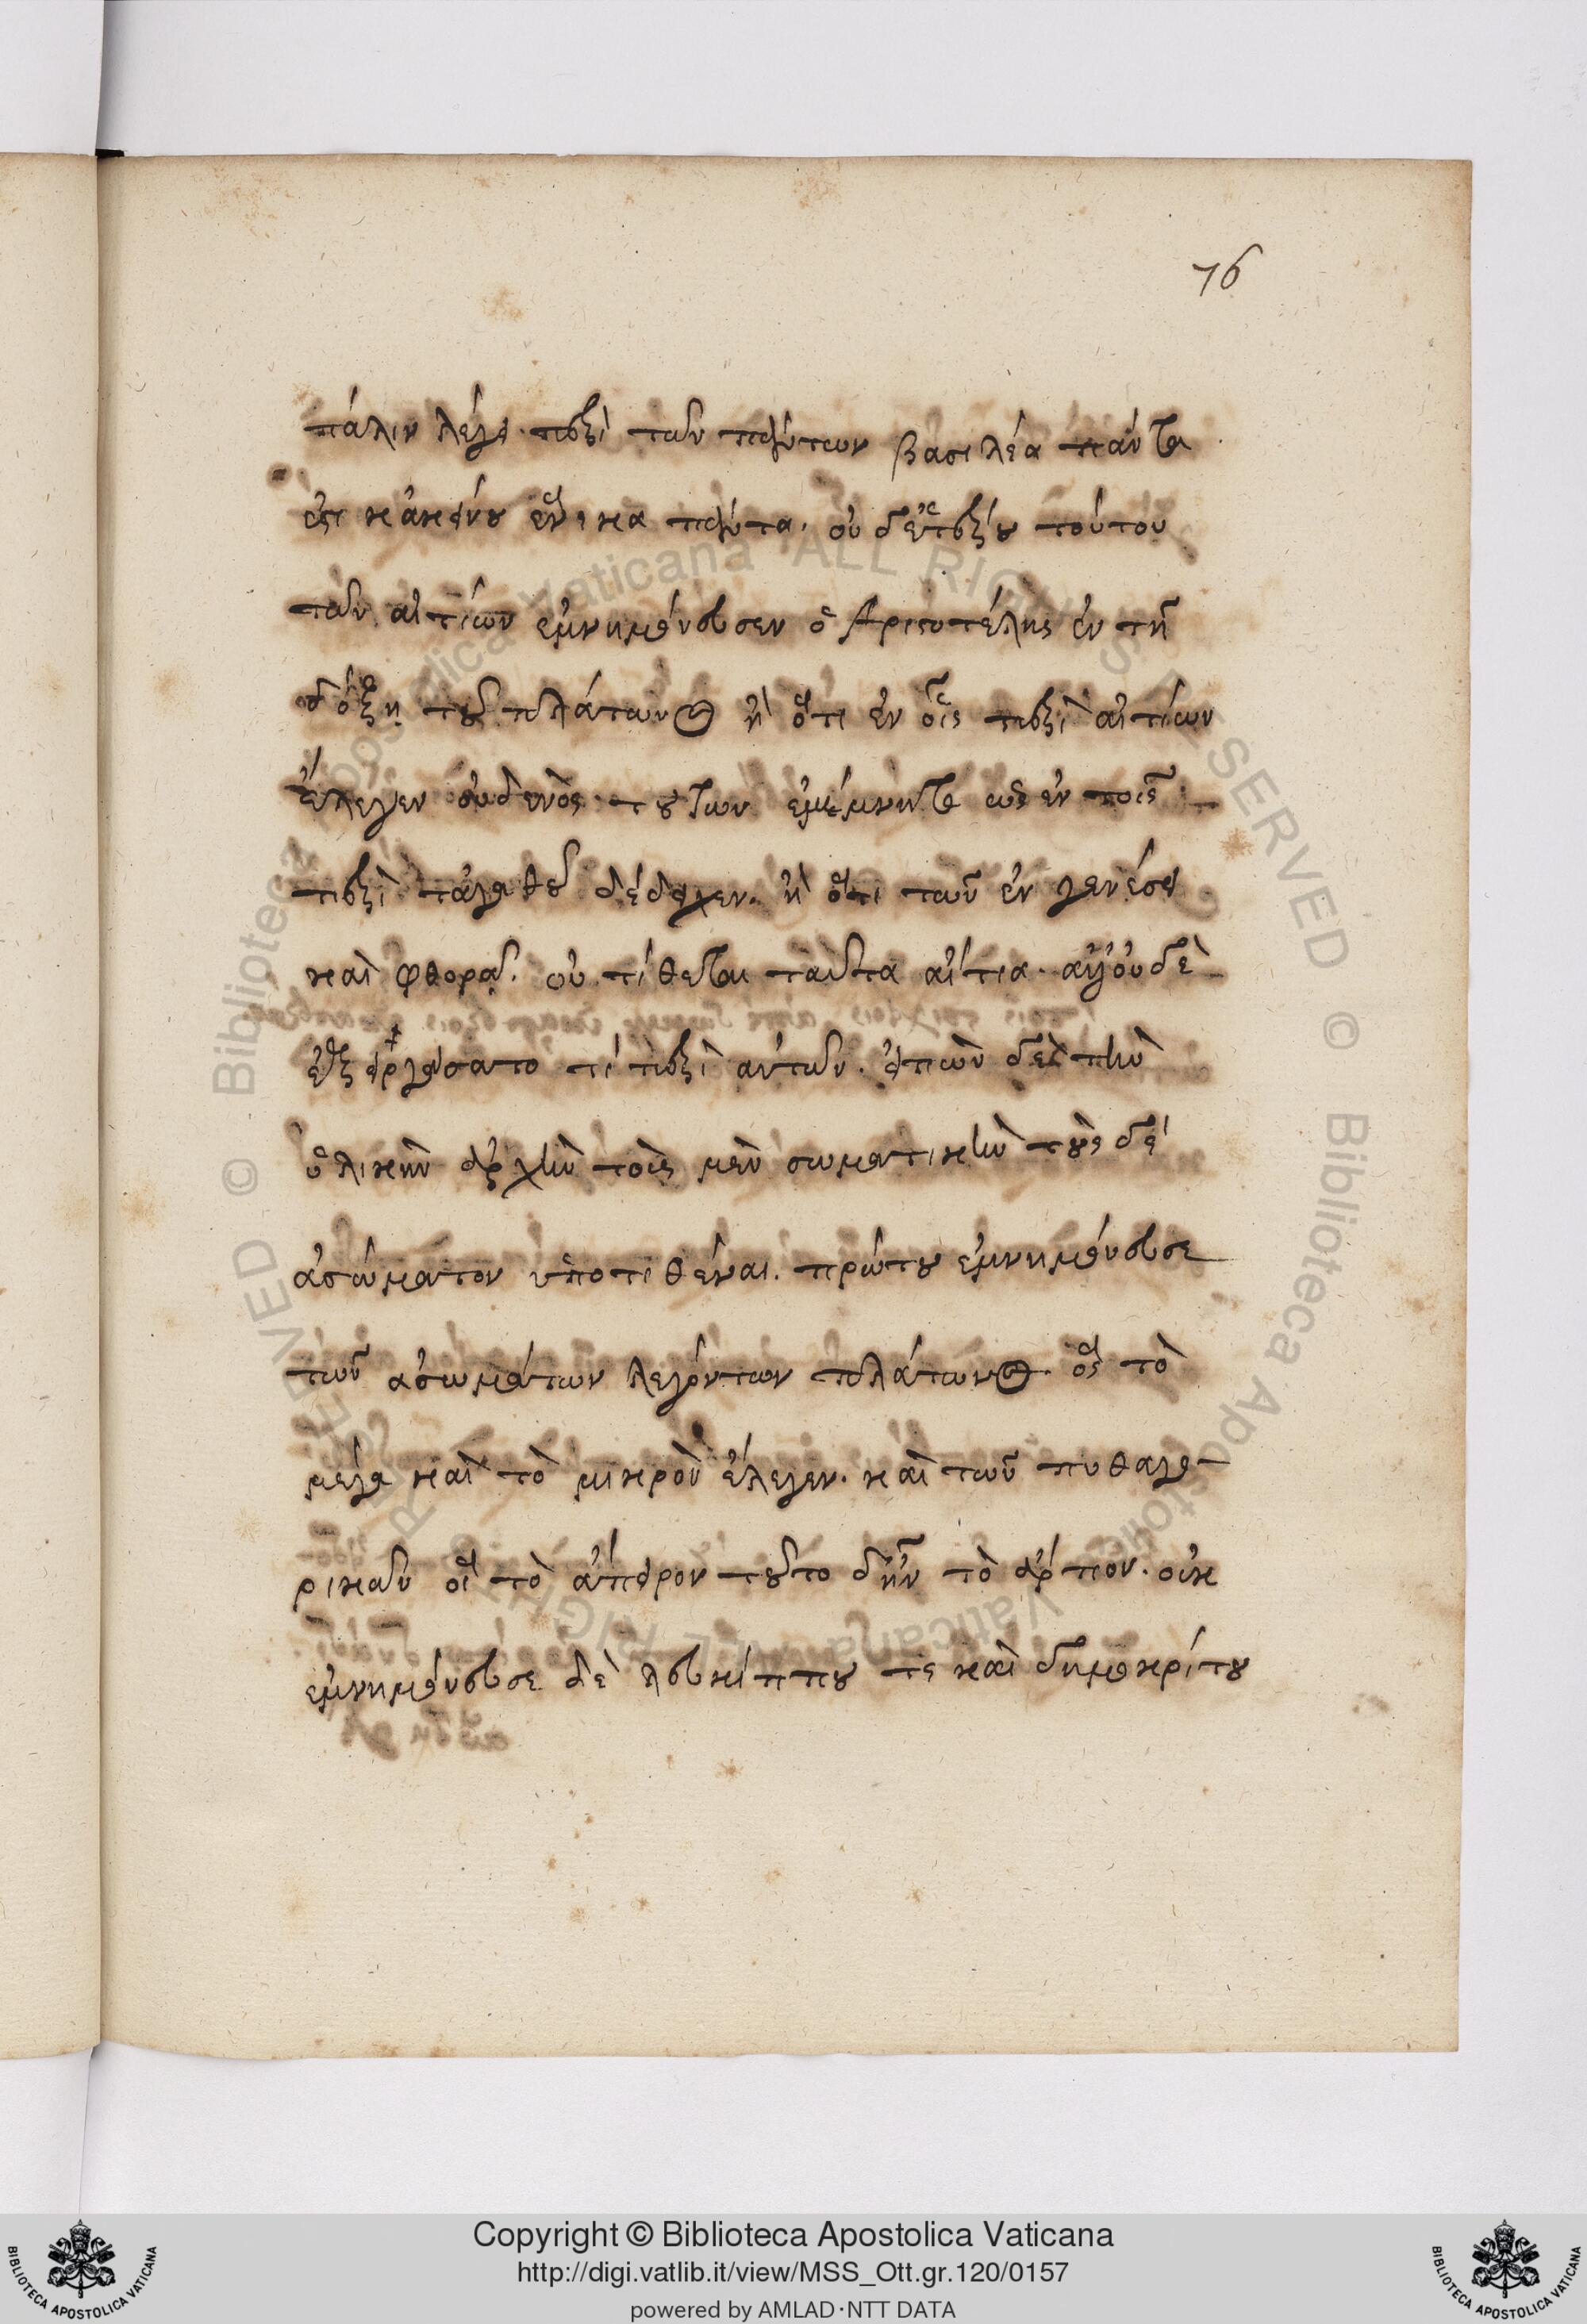 76
πάλιν λέγει. περὶ τῶν πάντων βασιλέα πάντα
ἐστι κἀκείνου ἕνεκα πάντα. οὐδετέρου τούτου
τῶν αἰτίων ἐμνημόνευσεν ὁ Ἀριστοτέλης ἐν τῇ
δόξῃ τοῦ πλάτωνος ἢ ὅτι ἐν οἷς περὶ αἰτίων
ἔλεγεν οὐδενὸς τούτων ἐμέμνητο ὡς ἐν τοῖς
περὶ τἀγαθοῦ δέδειχεν. ἢ ὅτι τῶν ἐν γενέσει
καὶ φθορᾷ. οὐ τίθεται ταῦτα αἴτια. ἀλλ' οὐδὲ
ἐξειργάσατο τί περὶ αὐτῶν. εἰπὼν δὲ τὴν
ὑλικὴν ἀρχὴν τοῖς μὲν σωματικὴν τοῖς δὲ
ἀσώματον ὑποτιθέναι. πρώτου ἐμνημόνευσε
τῶν ἀσωμάτων λεγόντων πλάτωνος. ὃς τὸ
μέγα καὶ τὸ μικρὸν ἔλεγεν. καὶ τῶν πυθαγο-
ρικῶν οἳ τὸ ἄπειρον τοῦτο δ' ἦν τὸ ἄρτιον. οὐκ
ἐμνημόνευσε δὲ λευκίππου τε καὶ δημοκρίτου
Copyright © Biblioteca Apostolica Vaticana
http://digi.vatlib.it/view/MSS_Ott.gr.120/0157
powered by AMLAD·NTT DATA
BIBLIOTECA APOSTOLICA VATICANA
BIBLIOTECA APOSTOLICA VATICANA